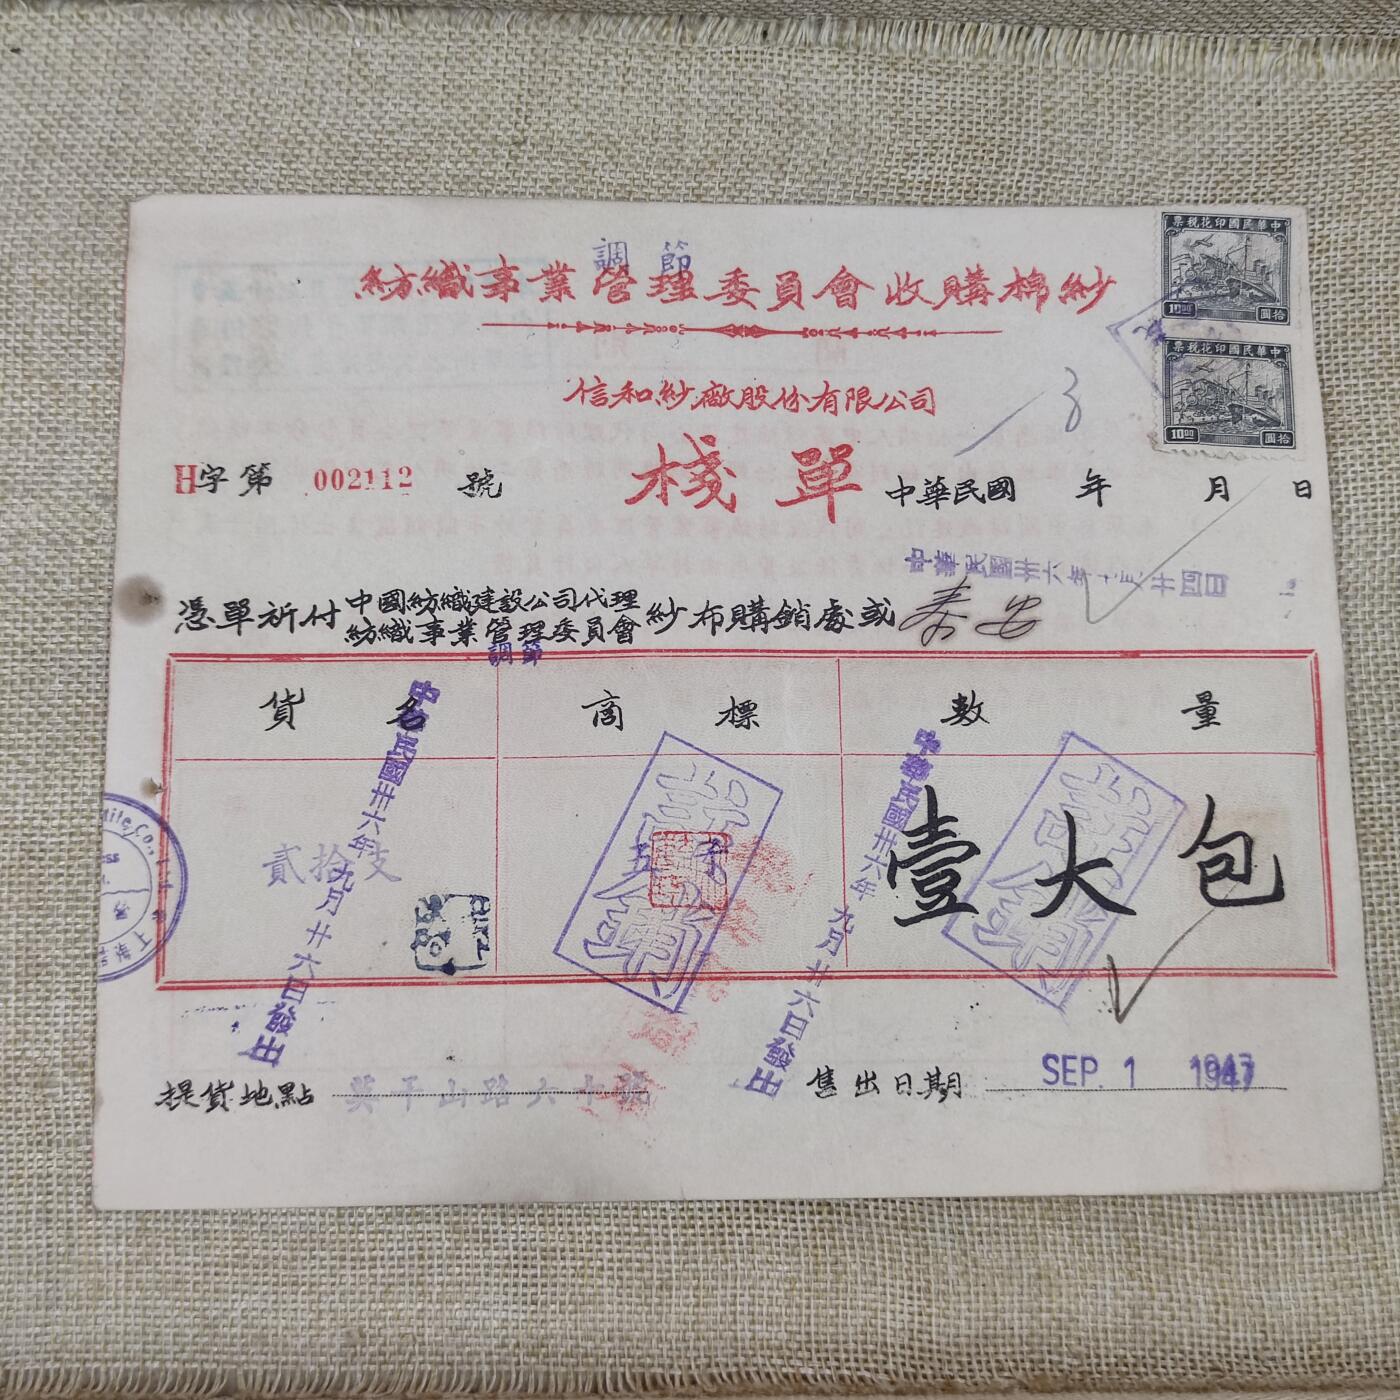 調節
紡織事業管理委員會收購棉紗
中華民國印花稅票
10.00 拾圓
中華民國印花稅票
10.00 拾圓
信和紗廠股份有限公司
H字第 002112 號
棧單
中華民國 年 月 日
憑單祈付中國紡織建設公司代理
紡織事業管理委員會
紗布購銷處或泰安
調節
貨名 商標 數量
貳拾支
壹大包
中華民國卅六年九月廿六日發出
中華民國卅六年九月廿六日發出
提貨地點 莫干山路六十號
售出日期 SEP. 1 1947